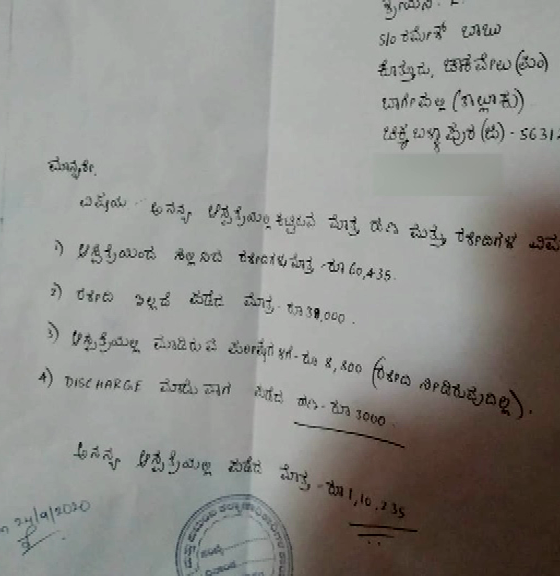 S/o ರಮೇಶ್ ಬಾಬು
ಕೊತ್ತೂರು, ಚಾಕವೇಲು (ಪೋ)
ಬಾಗೇಪಲ್ಲಿ (ತಾಲ್ಲೂಕು)
ಚಿಕ್ಕಬಳ್ಳಾಪುರ (ಜಿ) - 5631
ಮಾನ್ಯರೇ,
ವಿಷಯ - ಅನನ್ಯ ಆಸ್ಪತ್ರೆಯಲ್ಲಿ ಕಟ್ಟಿರುವ ಮೊತ್ತ ಹಣ ಮತ್ತು ರಶೀದಿಗಳ ವಿವ
1) ಆಸ್ಪತ್ರೆಯಿಂದ ರಶೀದಿಗಳ ಮೊತ್ತ - ರೂ 60,435.
2) ರಶೀದಿ ಇಲ್ಲದೆ ಪಡೆದ ಮೊತ್ತ - ರೂ 38,000.
3) ಆಸ್ಪತ್ರೆಯಲ್ಲಿ ಮಾಡಿರುವ - ರೂ 8,800 (ರಶೀದಿ ನೀಡಿರುವುದಿಲ್ಲ).
4) DISCHARGE ಮಾಡುವಾಗ ಪಡೆದ ಹಣ - ರೂ 3000.
ಅನನ್ಯ ಆಸ್ಪತ್ರೆಯಲ್ಲಿ ಪಡೆದ ಮೊತ್ತ - ರೂ 1,10,235
24/9/2020